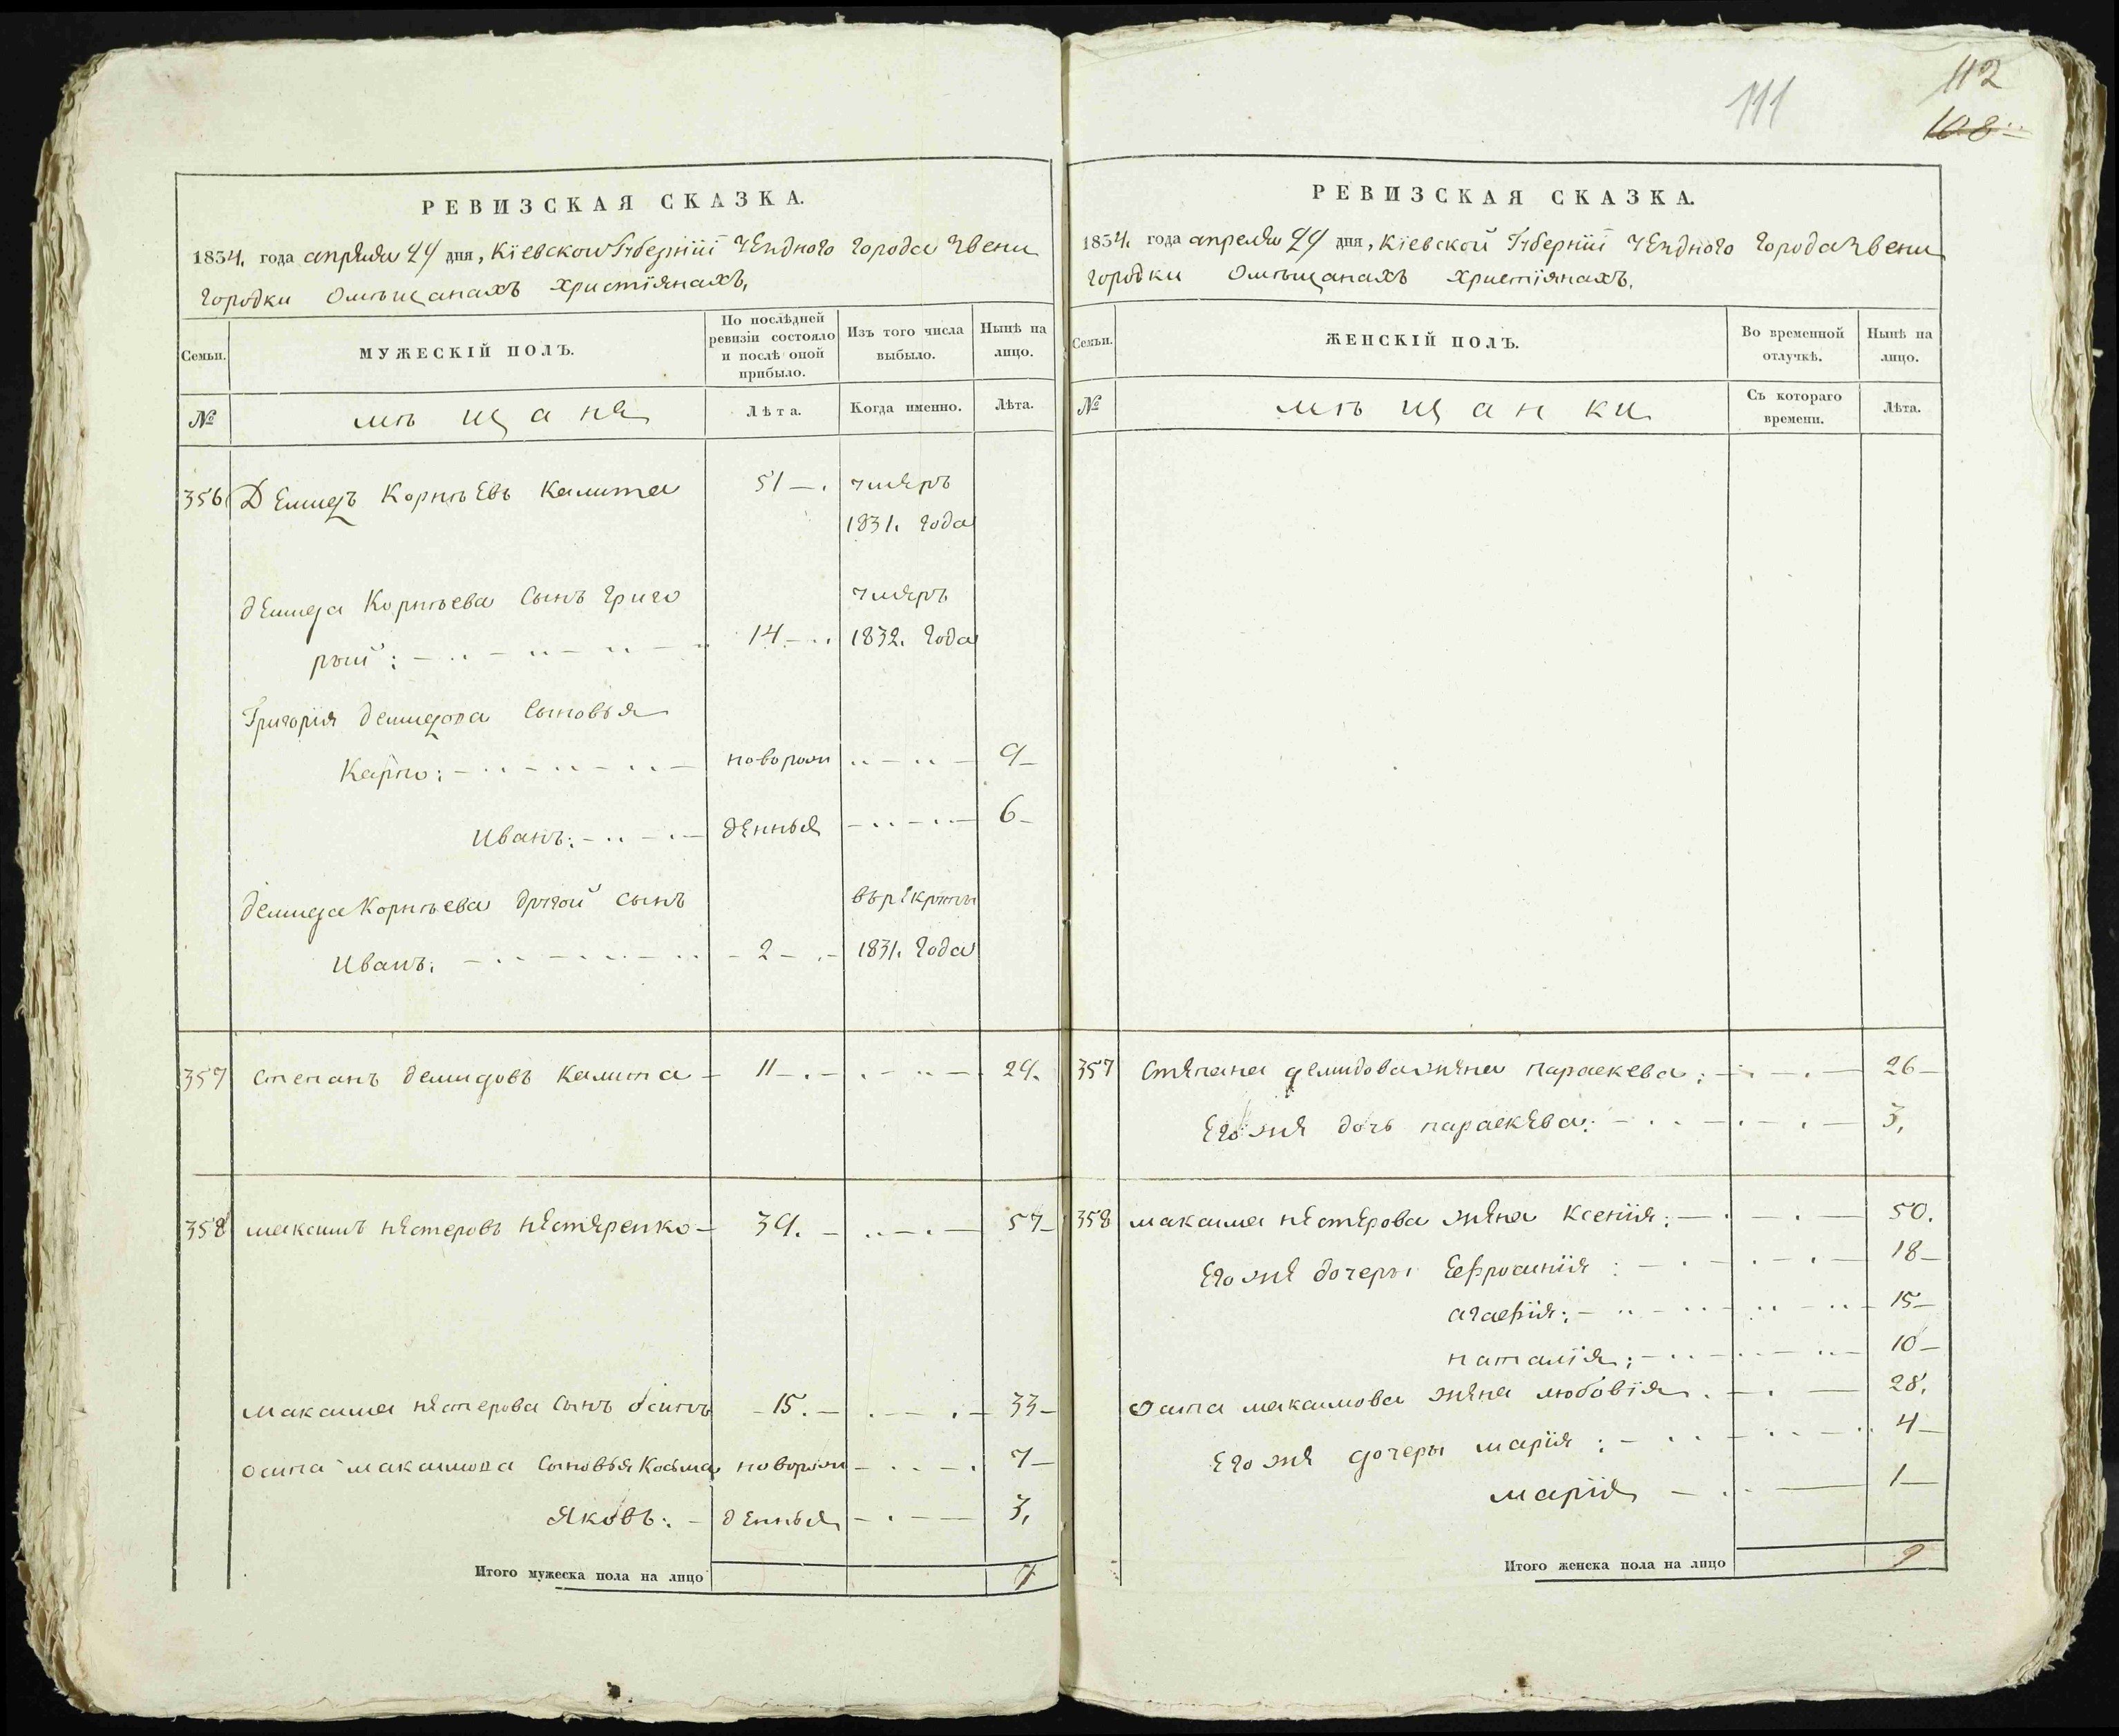 111
112
108
РЕВИЗСКАЯ СКАЗКА.
1834. года апреля 24 дня, Кіевской Губерніи Уезднаго города Звени
городки о мѣщанахъ христіянахъ.
Семьи.
МУЖЕСКІЙ ПОЛЪ.
По послѣдней ревизіи состояло и послѣ оной прибыло.
Изъ того числа выбыло.
Нынѣ на лицо.
№
мѣщане
Лѣта.
Когда именно.
Лѣта.
356 Демидъ Корнѣевъ Калита 51 умеръ
1831. года
демида Корнѣева сынъ Григо умеръ
рый: 14 1832. года
Григорія демидова сыновья
Карпо: новорож 9
Иванъ: денные 6
демида Корнѣева другой сынъ въ рекруты
Иванъ: 2 1831. года
357 Степанъ демидовъ Калита 11 29.
358 максимъ нестеровъ нестеренко 39. 57
максима нестерова сынъ Осипъ 15. 33
осипа максимова сыновья Козьма новорож 7
Яковъ: денные 3.
Итого мужеска пола на лицо 7
РЕВИЗСКАЯ СКАЗКА.
1834. года апреля 24 дня, Кіевской Губерніи Уезднаго города Звени
городки о мѣщанахъ христіянахъ.
Семьи.
ЖЕНСКІЙ ПОЛЪ.
Во временной отлучкѣ.
Нынѣ на лицо.
№
мѣщанки
Съ котораго времени.
Лѣта.
357 Степана демидова жена параскева: 26
Его же дочь параскева: 3.
358 максима нестерова жена ксенія: 50.
Его же дочеры Ефросинія: 18
агафія: 15
наталія: 10
осипа максимова жена любовія 28.
Его же дочеры марія: 4
марія 1
Итого женска пола на лицо 9